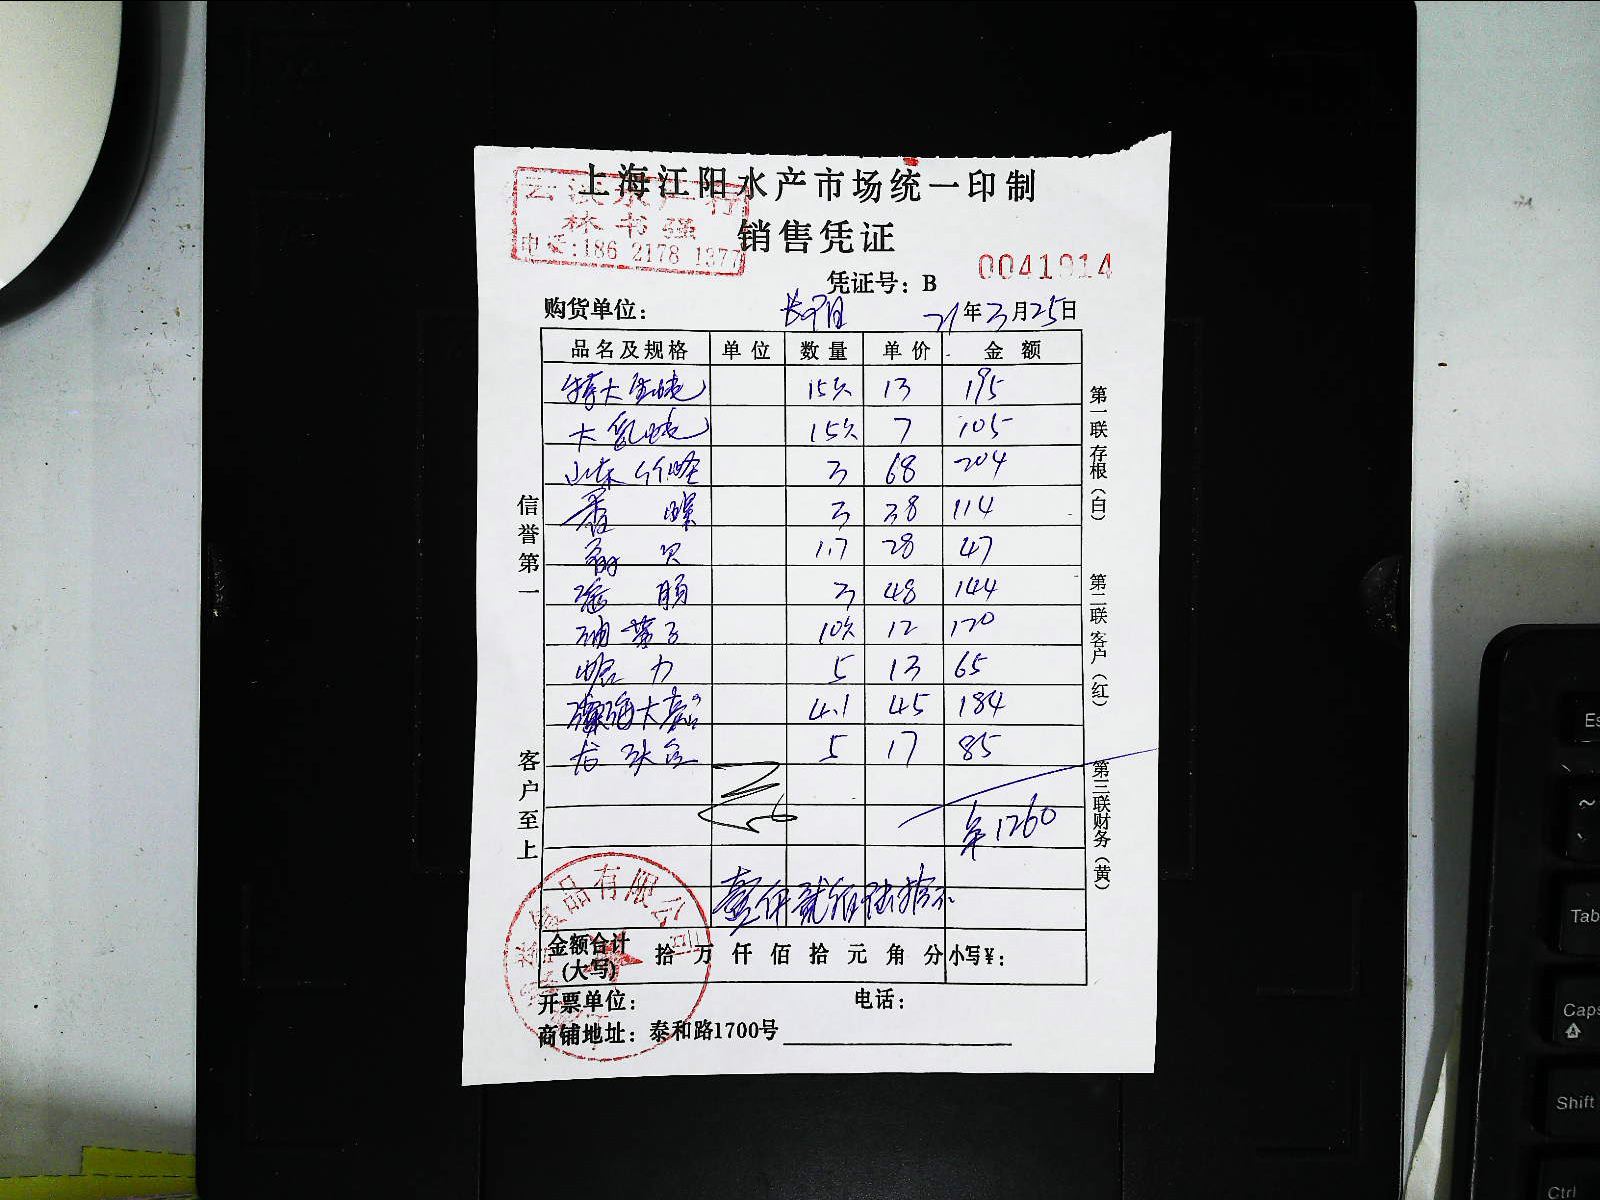 上海江阳水产市场统一印制
云洪水产行
林书强
电话:186 2178 1377
销售凭证
凭证号：B 0041914
购货单位： 21年3月25日
品名及规格 单位 数量 单价 金额
特大生蚝 15只 13 195
大乳蚝 15只 7 105
山东竹蛏 3 68 204
香螺 3 38 114
贝 1.7 28 47
3 48 144
10只 12 120
蛤力 5 13 65
大 4.1 45 184
龙头 5 17 85
¥1260
壹仟贰佰陆拾元
金额合计
(大写) 拾 万 仟 佰 拾 元 角 分 小写¥：
开票单位： 电话：
商铺地址：泰和路1700号
信誉第一
客户至上
第一联存根（白）
第二联客户（红）
第三联财务（黄）
食品有限公司
Es
~
Tab
Caps
Shift
Ctrl